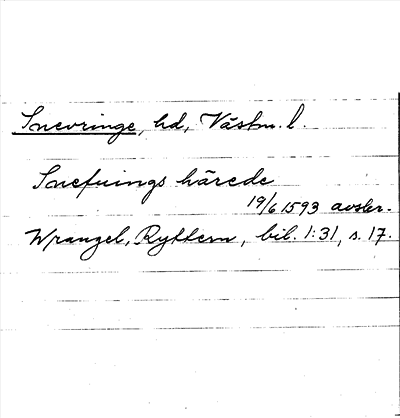 Snevringe, hd, Västm. l.
Snefrings härede
19/6 1593 avskr.
Wrangel, Ryttern, bil. 1:31, s. 17.